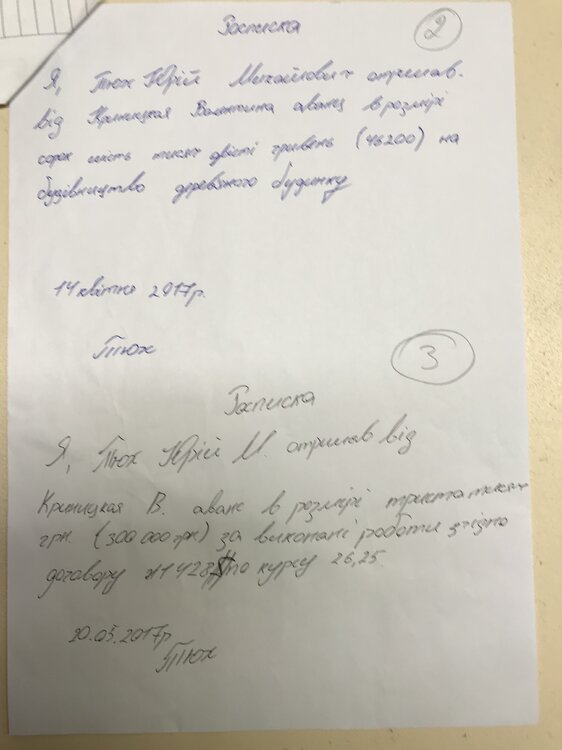 Расписка
2
Я, Тюх Юрій Михайлович отримав
від Криницкая Валентина аванц в розмірі
сорок шість тисяч двісті гривень (46200) на
будівництво деревяного будинку
14 квітня 2017р.
Тюх
3
Расписка
Я, Тюх Юрій М. отримав від
Криницкая В. аванс в розмірі триста тисяч
грн. (300 000 грн) за виконані роботи згідно
договору по курсу 26,25
20.05.2017р
Тюх